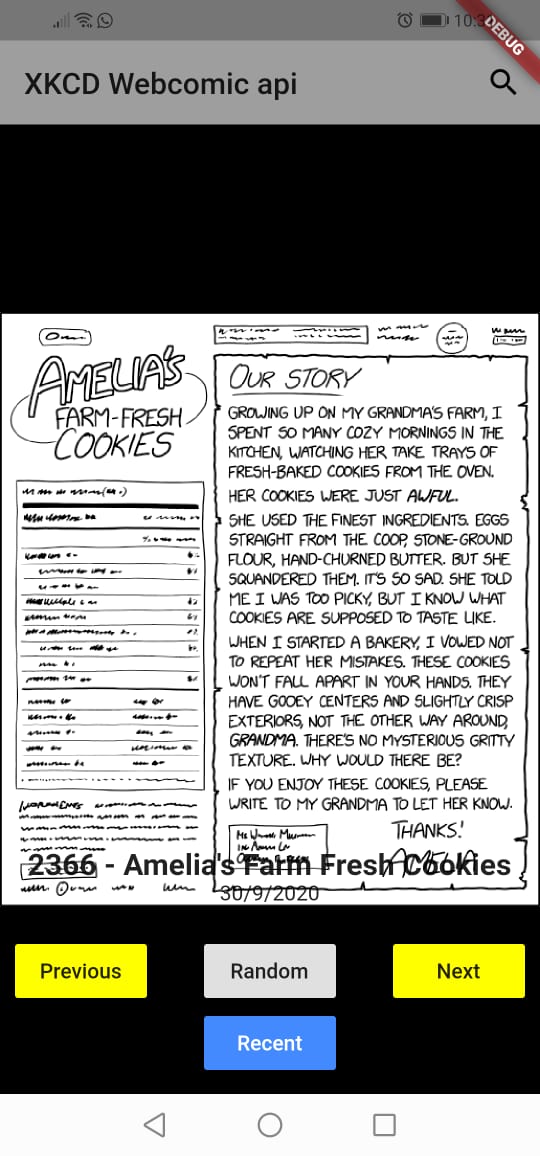 10:3
DEBUG
XKCD Webcomic api
AMELIA'S
FARM-FRESH
COOKIES
OUR STORY
GROWING UP ON MY GRANDMA'S FARM, I
SPENT SO MANY COZY MORNINGS IN THE
KITCHEN, WATCHING HER TAKE TRAYS OF
FRESH-BAKED COOKIES FROM THE OVEN.
HER COOKIES WERE JUST AWFUL.
SHE USED THE FINEST INGREDIENTS. EGGS
STRAIGHT FROM THE COOP, STONE-GROUND
FLOUR, HAND-CHURNED BUTTER. BUT SHE
SQUANDERED THEM. IT'S SO SAD. SHE TOLD
ME I WAS TOO PICKY, BUT I KNOW WHAT
COOKIES ARE SUPPOSED TO TASTE LIKE.
WHEN I STARTED A BAKERY, I VOWED NOT
TO REPEAT HER MISTAKES. THESE COOKIES
WON'T FALL APART IN YOUR HANDS. THEY
HAVE GOOEY CENTERS AND SLIGHTLY CRISP
EXTERIORS, NOT THE OTHER WAY AROUND,
GRANDMA. THERE'S NO MYSTERIOUS GRITTY
TEXTURE. WHY WOULD THERE BE?
IF YOU ENJOY THESE COOKIES, PLEASE
WRITE TO MY GRANDMA TO LET HER KNOW.
THANKS!
AMELIA
2366 - Amelia's Farm Fresh Cookies
30/9/2020
Previous
Random
Next
Recent